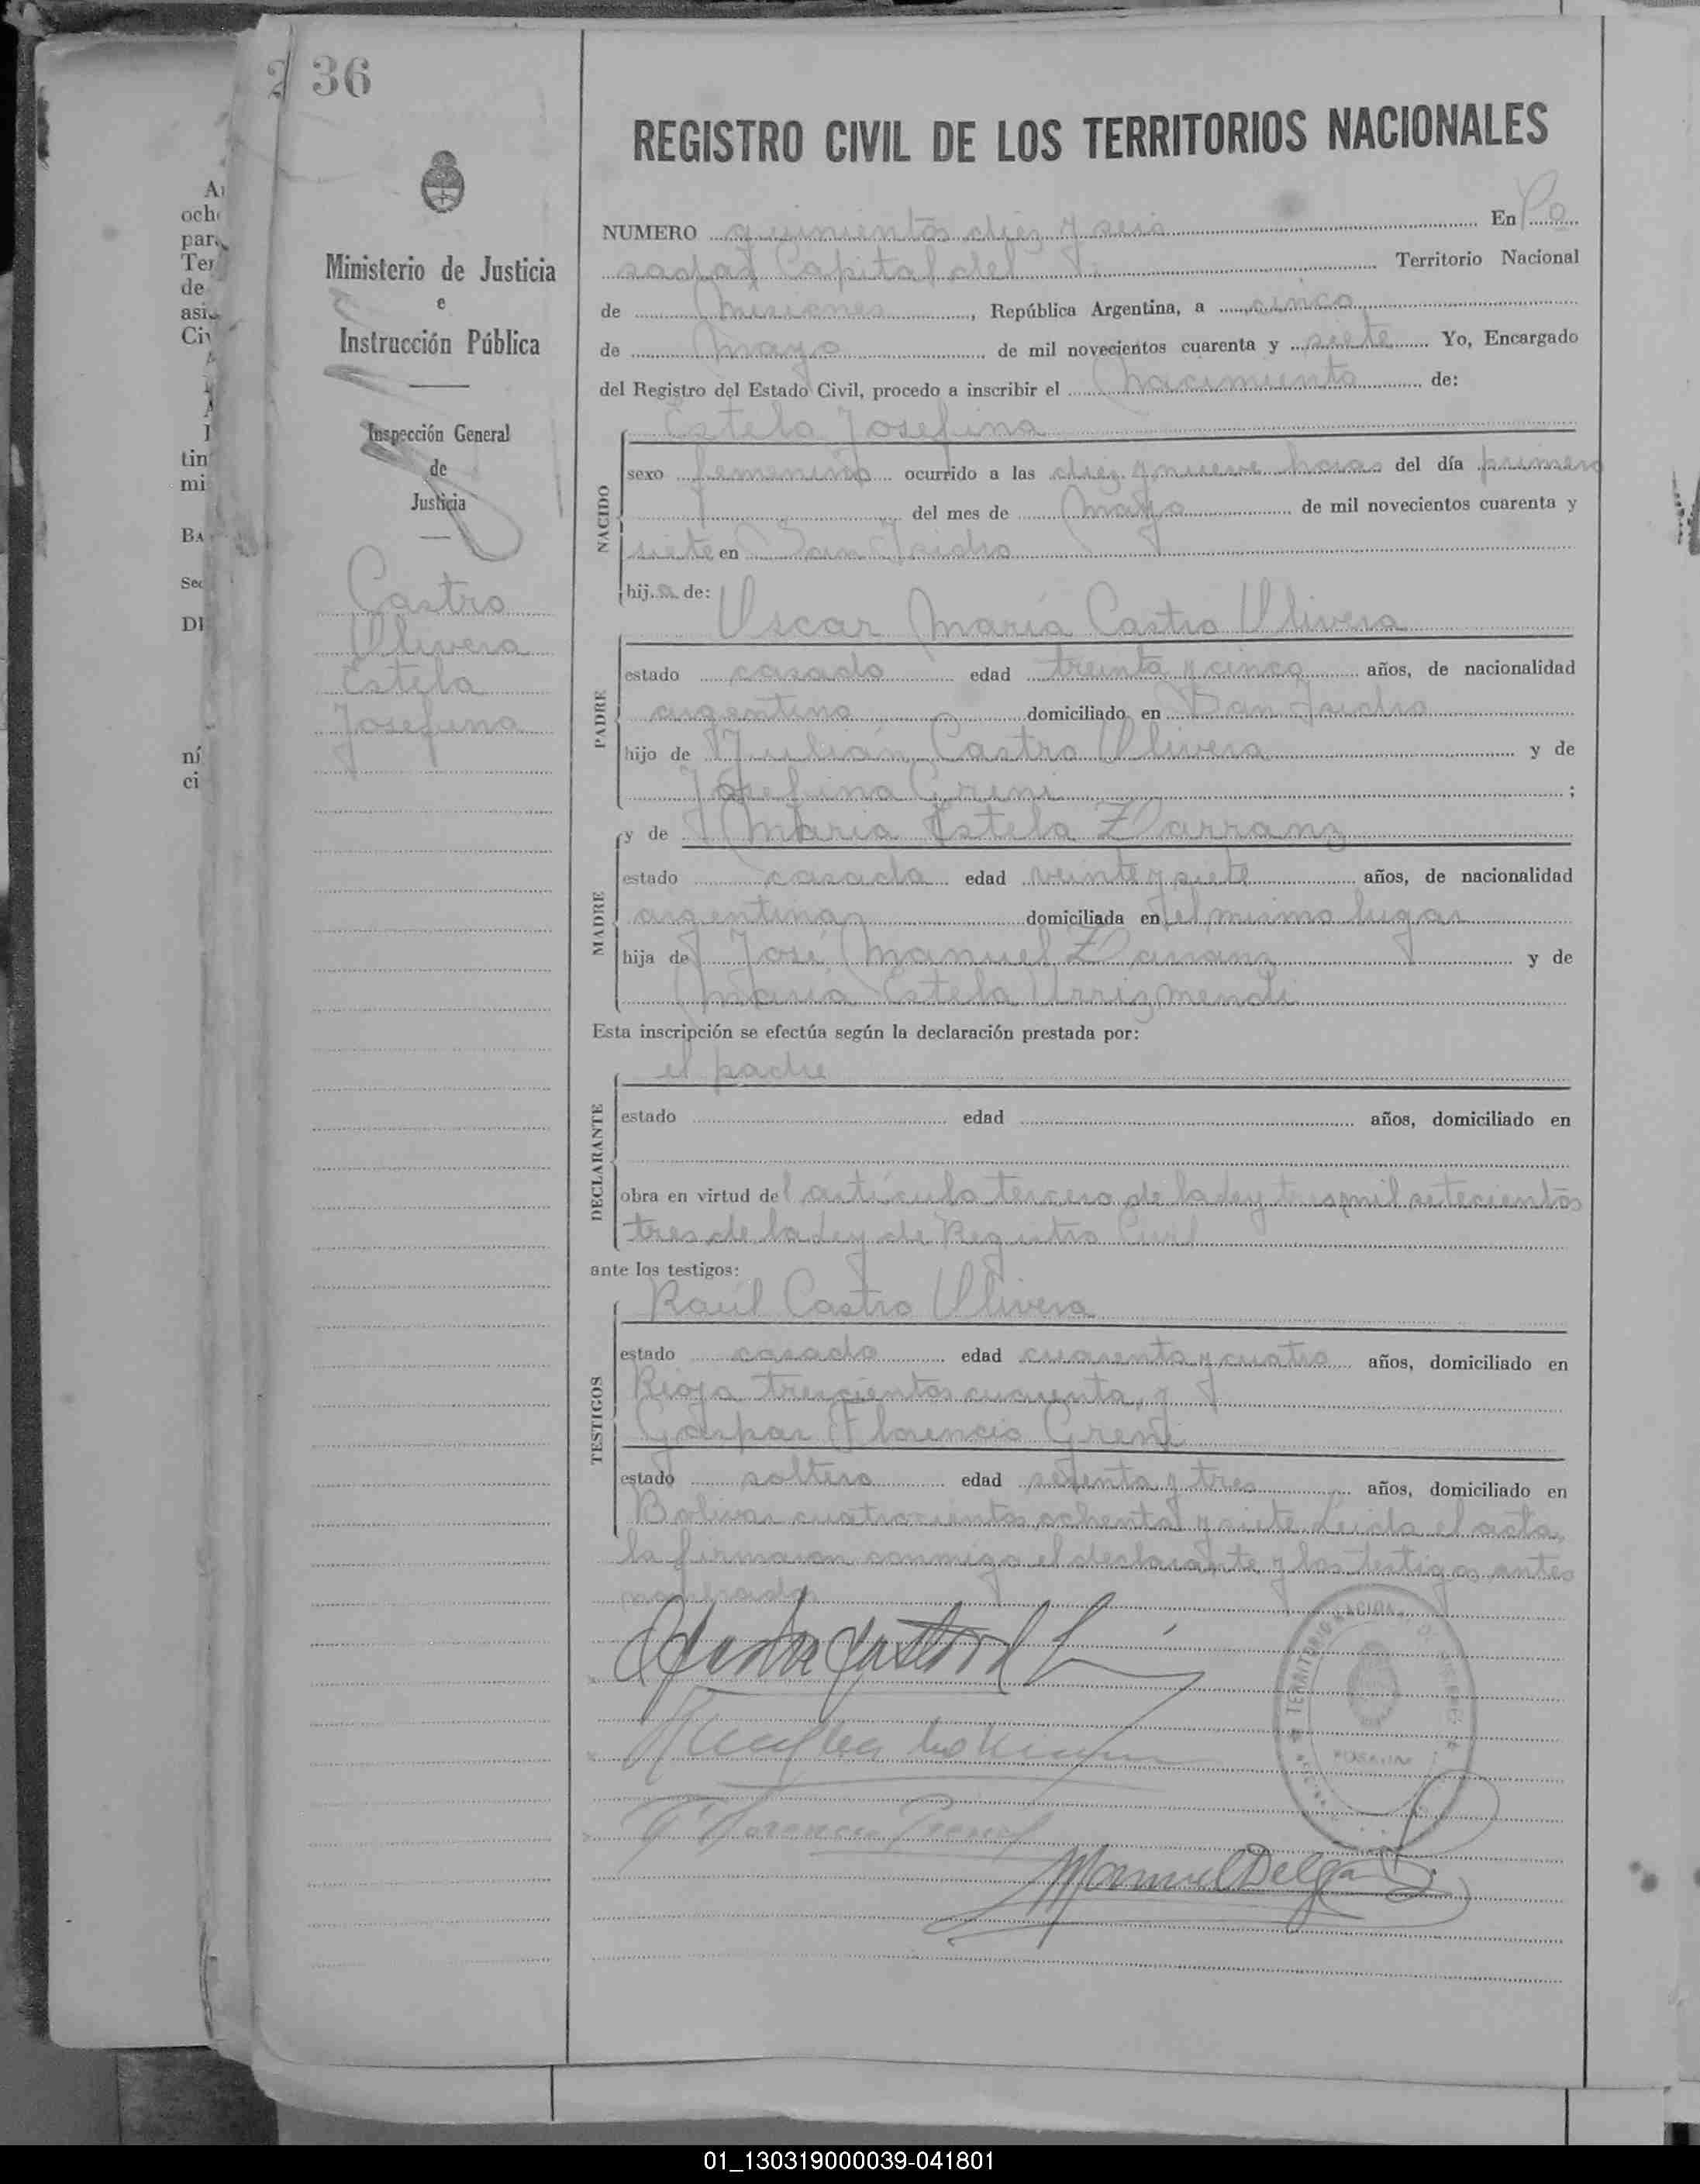 36
REGISTRO CIVIL DE LOS TERRITORIOS NACIONALES
Ministerio de Justicia
e
Instrucción Pública
Inspección General
de
Justicia
Castro
Olivera
Estela
Josefina
NUMERO quinientos diez y seis En Po
sadas Capital del Territorio Nacional
de Misiones, República Argentina, a cinco
de Mayo de mil novecientos cuarenta y siete Yo, Encargado
del Registro del Estado Civil, procedo a inscribir el nacimiento de:
NACIDO
Estela Josefina
sexo femenino ocurrido a las diez y nueve horas del día primero
del mes de Mayo de mil novecientos cuarenta y
siete en San Isidro
hij a de:
PADRE
Oscar María Castro Olivera
estado casado edad treinta y cinco años, de nacionalidad
argentina domiciliado en San Isidro
hijo de Julián Castro Olivera y de
Josefina Greni ;
MADRE
y de María Estela Zarranz
estado casada edad veinte y siete años, de nacionalidad
argentina domiciliada en el mismo lugar
hija de José Manuel Zarranz y de
María Estela Urrizmendi
Esta inscripción se efectúa según la declaración prestada por:
DECLARANTE
el padre
estado edad años, domiciliado en
obra en virtud del artículo tercero de la ley tres mil setecientos
tres de la Ley de Registro Civil
ante los testigos:
TESTIGOS
Raúl Castro Olivera
estado casado edad cuarenta y cuatro años, domiciliado en
Rioja trescientos cuarenta, y
Gaspar Florencio Greni
estado soltero edad setenta y tres años, domiciliado en
Bolívar cuatrocientos ochenta y siete. Leída el acta,
la firmaron conmigo el declarante y los testigos antes
nombrados
Manuel Delga
01_130319000039-041801